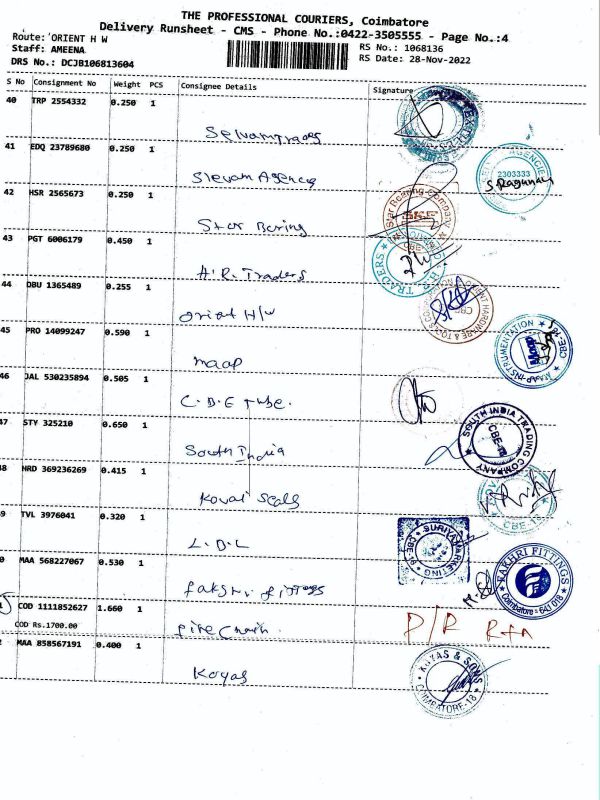 THE PROFESSIONAL COURIERS, Coimbatore
Delivery Runsheet - CMS - Phone No.:0422-3505555 - Page No.:4
Route: ORIENT H W
RS No.: 1068136
Staff: AMEENA
RS Date: 28-Nov-2022
DRS No.: DCJB106813604
S No Consignment No Weight PCS Consignee Details Signature
40 TRP 2554332 0.250 1
Selvam Traders
41 EDQ 23789680 0.250 1
AGENCIE
2303333
S. Ragunan
Slevam Agency
42 HSR 2565673 0.250 1
Star Bearing Company
Star Bering
43 PGT 6006179 0.450 1
H.R. TRADERS
A.R. Traders
44 DBU 1365489 0.255 1
ORIENT HARDWARE & TOOLS
CBE
Orient H/W
45 PRO 14099247 0.590 1
MAAP INSTRUMENTATION CBE-18
maap
46 JAL 530235894 0.505 1
C.B.E Tube.
47 STY 325210 0.650 1
SOUTH INDIA TRADING COMPANY
CBE-18
South India
48 HRD 369236269 0.415 1
CBE-18
Kovai Scals
49 TVL 3976041 0.320 1
SURIYA MARKETING
CBE-18
L.B.L
0 MAA 568227067 0.530 1
FAKHRI FITTINGS
Coimbatore - 641 018
fakhri fittings
1 COD 1111852627 1.660 1
COD Rs.1700.00
fire Chain
D/R Rtn
2 MAA 858567191 0.400 1
KAYAS & SONS
COIMBATORE-18
Koyas